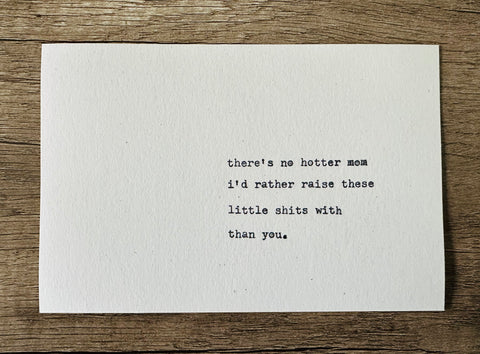 there's no hotter mom
i'd rather raise these
little shits with
than you.